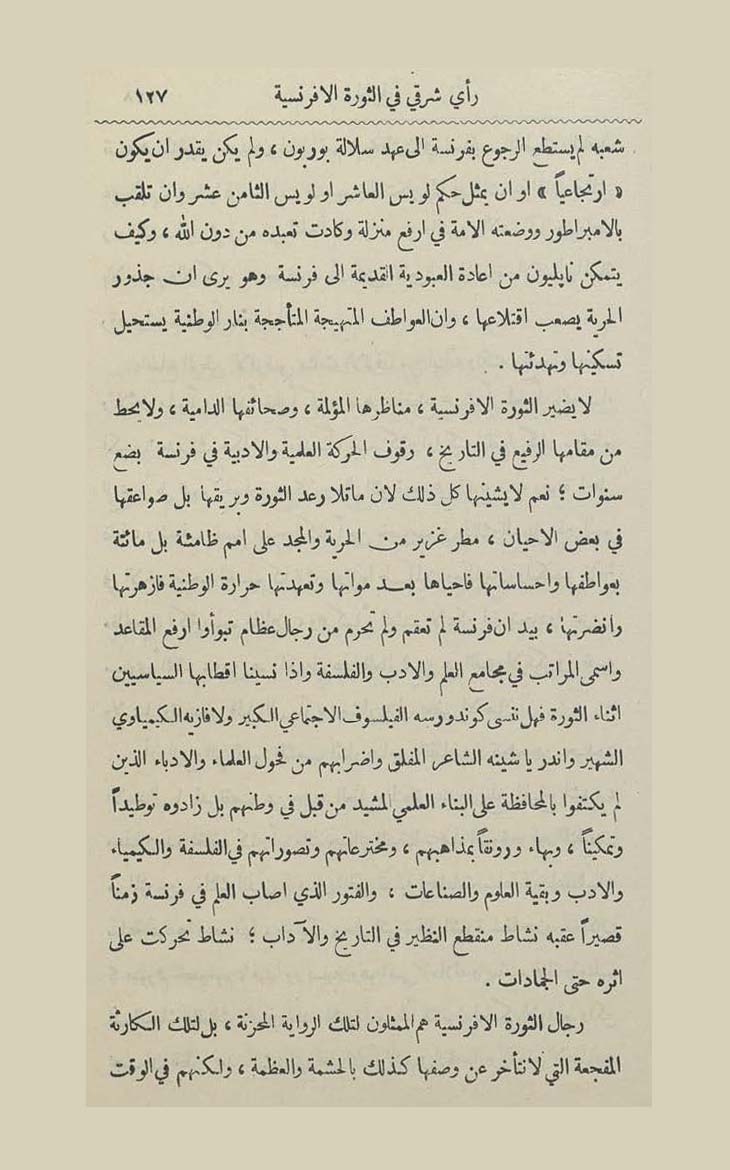 رأي شرقي في الثورة الافرنسية ١٢٧
شعبه لم يستطع الرجوع بفرنسة الى عهد سلالة بوربون ، ولم يكن يقدر ان يكون
« ارتجاعياً » او ان يمثل حكم لويس العاشر او لويس الثامن عشر وان تلقب
بالامبراطور ووضعته الامة في ارفع منزلة وكادت تعبده من دون الله ، وكيف
يتمكن ناپليون من اعادة العبودية القديمة الى فرنسة وهو يرى ان جذور
الحرية يصعب اقتلاعها ، وان العواطف المتهيجة المتأججة بنار الوطنية يستحيل
تسكينها وتهدئتها .
لا يضير الثورة الافرنسية ، مناظرها المؤلمة ، وصحائفها الدامية ، ولا يحط
من مقامها الرفيع في التاريخ ، رقوف الحركة العلمية والادبية في فرنسة بضع
سنوات ؛ نعم لا يشينها كل ذلك لان ماتلا رعد الثورة وبريقها بل صواعقها
في بعض الاحيان ، مطر غزير من الحرية والمجد على امم ظامئة بل مائتة
بعواطفها واحساساتها فاحياها بعد مواتها وتعهدتها حرارة الوطنية فازهرتها
وانضرتها ، بيد ان فرنسة لم تعقم ولم تحرم من رجال عظام تبوأوا ارفع المقاعد
واسمى المراتب في مجامع العلم والادب والفلسفة واذا نسينا اقطابها السياسيين
اثناء الثورة فهل ننسى كوندورسه الفيلسوف الاجتماعي الكبير ولافازيه الكيمياوي
الشهير واندريا شينه الشاعر المفلق واضرابهم من فحول العلماء والادباء الذين
لم يكتفوا بالمحافظة على البناء العلمي المشيد من قبل في وطنهم بل زادوه توطيداً
وتمكيناً ، وبهاء ورونقاً بمذاهبهم ، ومخترعاتهم وتصوراتهم في الفلسفة والكيمياء
والادب وبقية العلوم والصناعات ، والفتور الذي اصاب العلم في فرنسة زمناً
قصيراً عقبه نشاط منقطع النظير في التاريخ والآداب ؛ نشاط تحركت على
اثره حتى الجمادات .
رجال الثورة الافرنسية هم الممثلون لتلك الرواية المحزنة ، بل لتلك الكارثة
المفجعة التي لا نتأخر عن وصفها كذلك بالحشمة والعظمة ، ولكنهم في الوقت